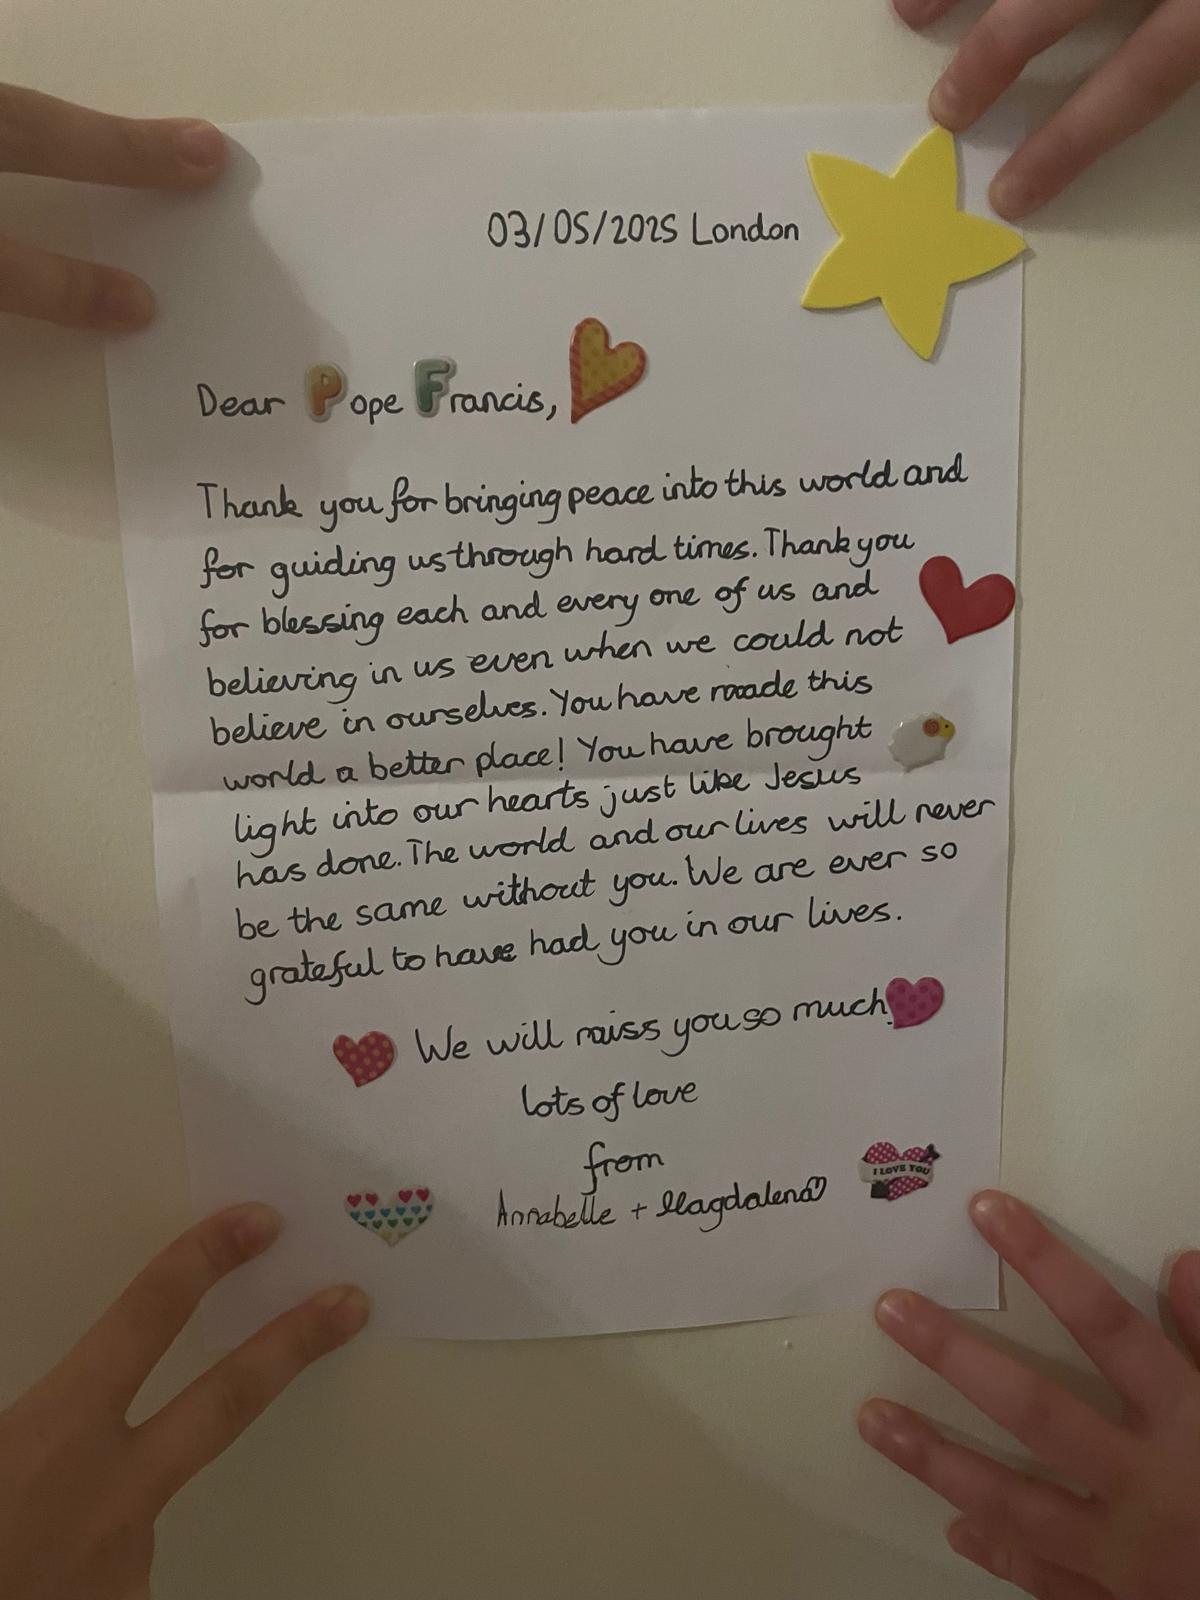 03/05/2025 London
Dear Pope Francis,
Thank you for bringing peace into this world and
for guiding us through hard times. Thank you
for blessing each and every one of us and
believing in us even when we could not
believe in ourselves. You have made this
world a better place! You have brought
light into our hearts just like Jesus
has done. The world and our lives will never
be the same without you. We are ever so
grateful to have had you in our lives.
We will miss you so much!
lots of love
from
I LOVE YOU
Annabelle + Magdalena